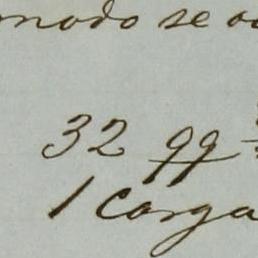 modo se
32 qq
1 Carga